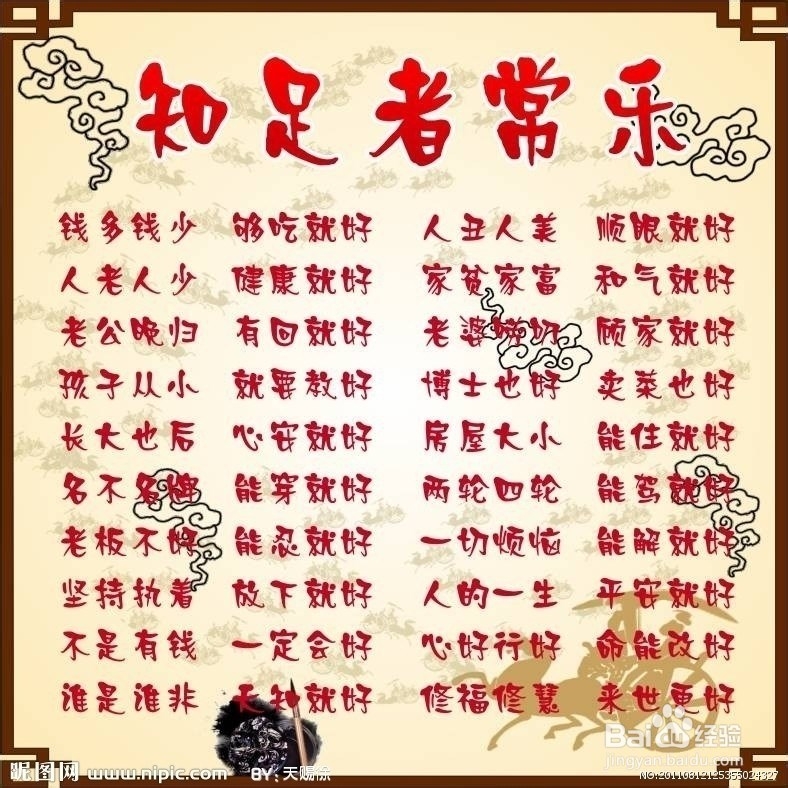 知足者常乐
钱多钱少 够吃就好 人丑人美 顺眼就好
人老人少 健康就好 家贫家富 和气就好
老公晚归 有回就好 老婆唠叨 顾家就好
孩子从小 就要教好 博士也好 卖菜也好
长大也后 心安就好 房屋大小 能住就好
名不名牌 能穿就好 两轮四轮 能驾就好
老板不好 能忍就好 一切烦恼 能解就好
坚持执着 放下就好 人的一生 平安就好
不是有钱 一定会好 心好行好 命能改好
谁是谁非 天知就好 修福修慧 来世更好
Bai du 经验
jingyan.baidu.com
昵图网 www.nipic.com BY:天赐徐 NO:20110812125355024327